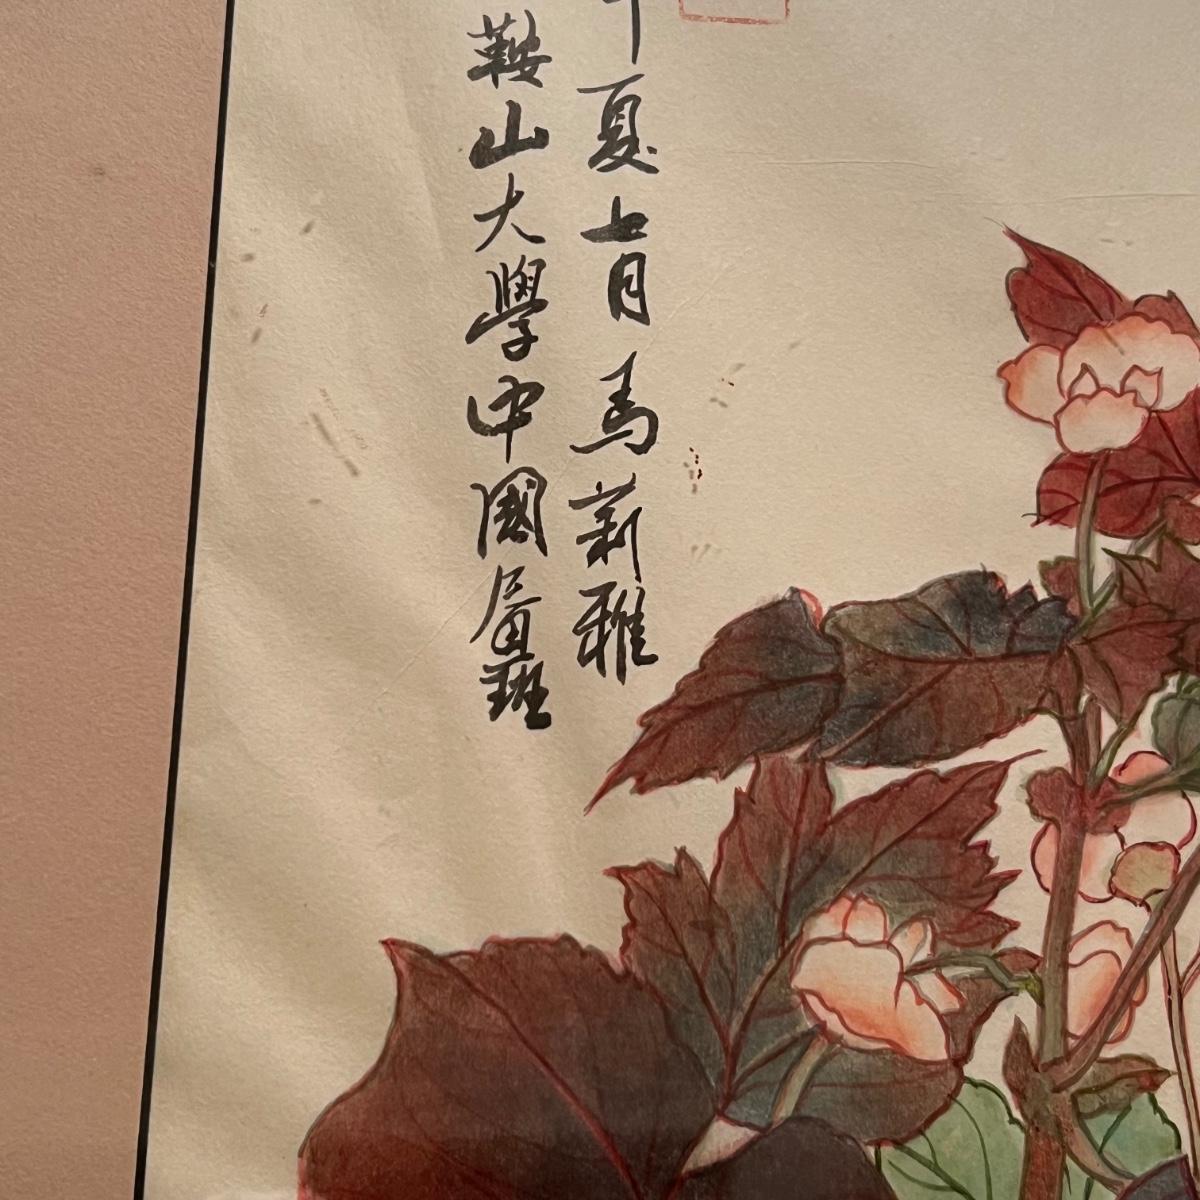 夏七月馬莉雅
鞍山大學中國畫班